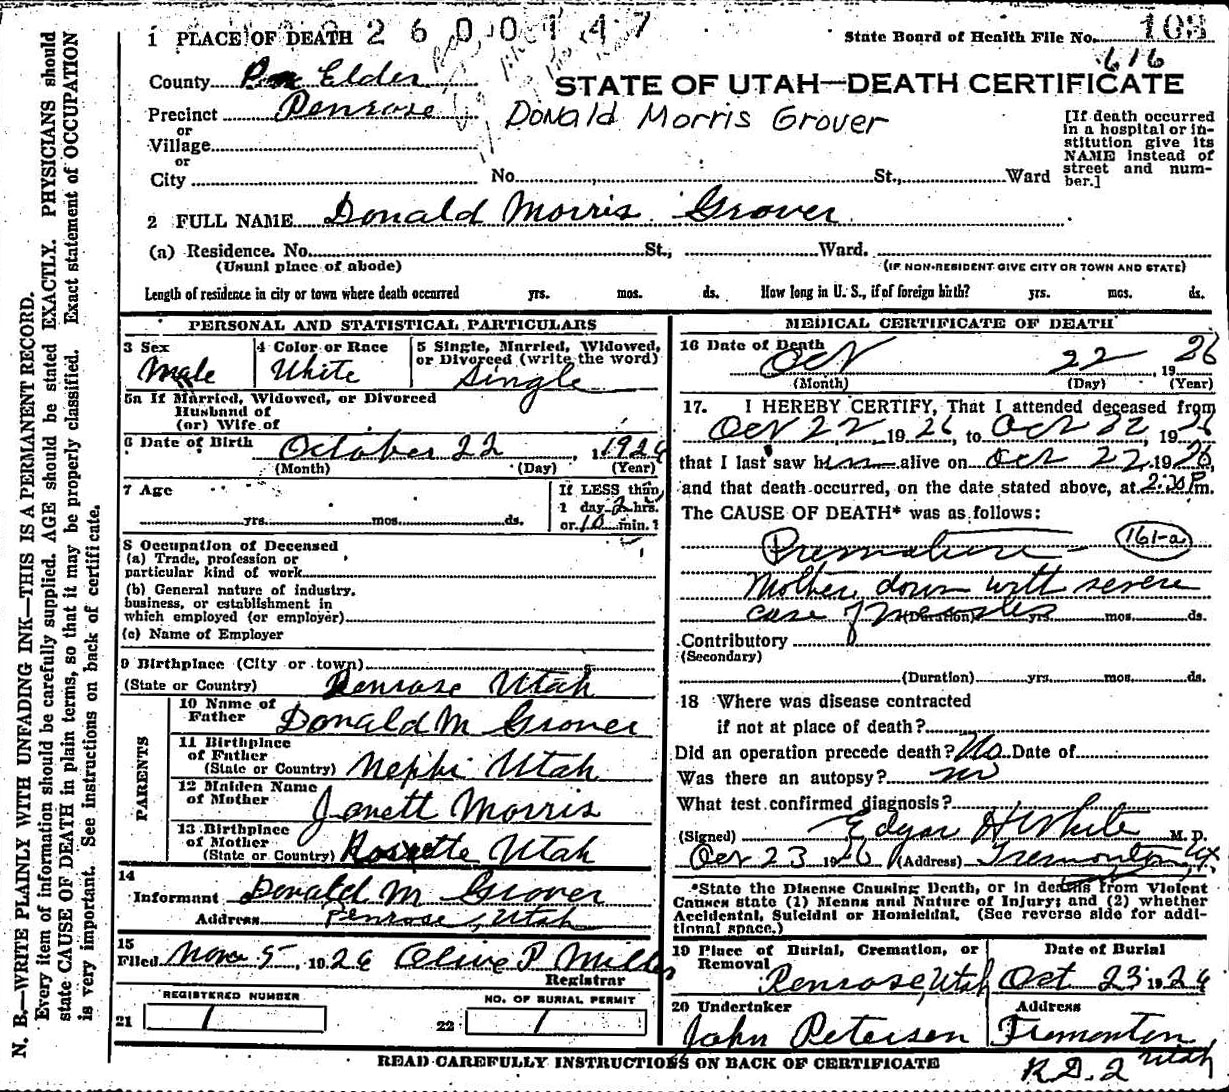 1 PLACE OF DEATH 2600147
State Board of Health File No. 108
616
County Box Elder
STATE OF UTAH—DEATH CERTIFICATE
Precinct Penrose
Donald Morris Grover
or
Village
or
City No. St., Ward
[If death occurred
in a hospital or in-
stitution give its
NAME instead of
street and num-
ber.]
2 FULL NAME Donald Morris Grover
(a) Residence. No. St., Ward.
(Usual place of abode) (IF NON-RESIDENT GIVE CITY OR TOWN AND STATE)
Length of residence in city or town where death occurred yrs. mos. ds. How long in U. S., if of foreign birth? yrs. mos. ds.
PERSONAL AND STATISTICAL PARTICULARS
3 Sex
Male
4 Color or Race
White
5 Single, Married, Widowed,
or Divorced (write the word)
Single
5a If Married, Widowed, or Divorced
Husband of
(or) Wife of
6 Date of Birth October 22, 1926
(Month) (Day) (Year)
7 Age
yrs. mos. ds.
If LESS than
1 day 2 hrs.
or 10 min.?
8 Occupation of Deceased
(a) Trade, profession or
particular kind of work
(b) General nature of industry,
business, or establishment in
which employed (or employer)
(c) Name of Employer
9 Birthplace (City or town)
(State or Country) Penrose Utah
PARENTS
10 Name of
Father Donald M Grover
11 Birthplace
of Father
(State or Country) Nephi Utah
12 Maiden Name
of Mother Janett Morris
13 Birthplace
of Mother
(State or Country) Rosette Utah
14
Informant Donald M Grover
Address Penrose, Utah
15
Filed Nov 5, 1926 Olive P Miller
Registrar
REGISTERED NUMBER
21 1
NO. OF BURIAL PERMIT
22 1
MEDICAL CERTIFICATE OF DEATH
16 Date of Death
Oct 22, 1926
(Month) (Day) (Year)
17. I HEREBY CERTIFY, That I attended deceased from
Oct 22, 1926, to Oct 22, 1926
that I last saw him alive on Oct 22, 1926,
and that death occurred, on the date stated above, at 2:30 P.m.
The CAUSE OF DEATH* was as follows:
Premature 161-a
Mother down with severe
case of measles
(Duration) yrs. mos. ds.
Contributory
(Secondary)
(Duration) yrs. mos. ds.
18 Where was disease contracted
if not at place of death?
Did an operation precede death? No Date of
Was there an autopsy? no
What test confirmed diagnosis?
(Signed) Edgar H White M. D.
Oct 23 1926 (Address) Tremonton, Ut.
*State the Disease Causing Death, or in deaths from Violent
Causes state (1) Means and Nature of Injury; and (2) whether
Accidental, Suicidal or Homicidal. (See reverse side for addi-
tional space.)
19 Place of Burial, Cremation, or
Removal
Penrose, Utah
Date of Burial
Oct 23 1926
20 Undertaker
John Petersen
Address
Tremonton
Utah
R.D. 2
READ CAREFULLY INSTRUCTIONS ON BACK OF CERTIFICATE
N. B.—WRITE PLAINLY WITH UNFADING INK—THIS IS A PERMANENT RECORD.
Every item of information should be carefully supplied. AGE should be stated EXACTLY. PHYSICIANS should
state CAUSE OF DEATH in plain terms, so that it may be properly classified. Exact statement of OCCUPATION
is very important. See instructions on back of certificate.